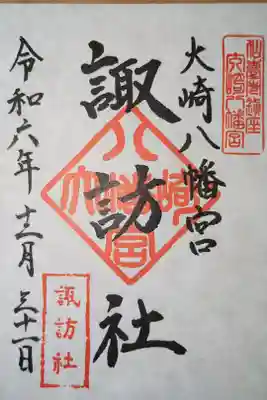 大崎八幡宮
大崎八幡宮
諏訪社
大崎八幡宮
令和六年十二月三十一日
諏訪社